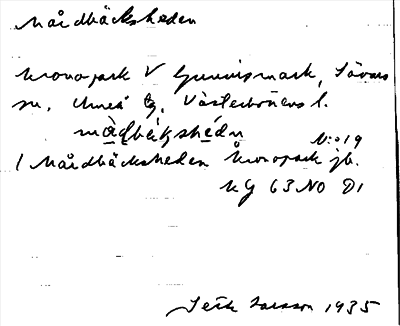 Mårdbäcksheden
Kronopark V Gunnismark, Sävars
sn, Umeå tg, Västerbottens l.
màḍbäkshédn
N:o 19
1 Mårdbäcksheden Kronopark jb.
KG 63 NO D1
Seth Larsson 1935